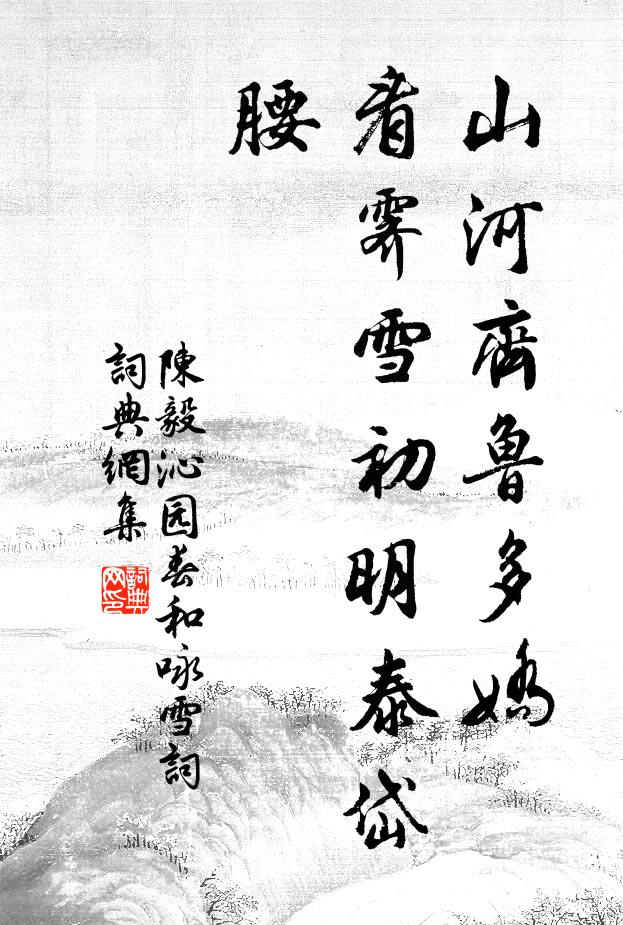 山河齊魯多嬌
看霽雪初明泰岱
腰
陳毅沁园春和咏雪詞
詞典網集
詞典网印